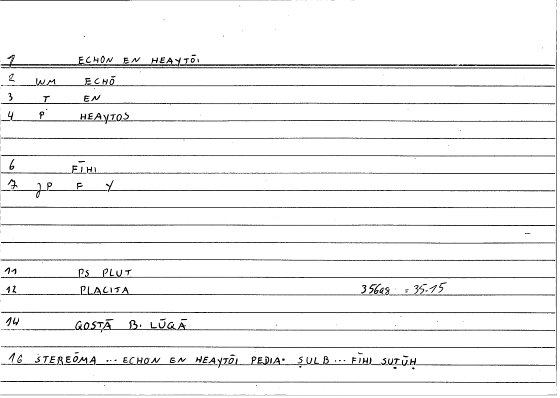 1 ECHON EN HEAYTŌI
2 WM ECHŌ
3 T EN
4 P HEAYTOS
6 FĪHI
7 JP F Y
11 PS PLUT
12 PLACITA 356a8 = 35.15
14 QOSṬĀ B. LŪQĀ
16 STEREŌMA ... ECHON EN HEAYTŌI PEDIA· ṢULB ... FĪHI SUṬŪḤ